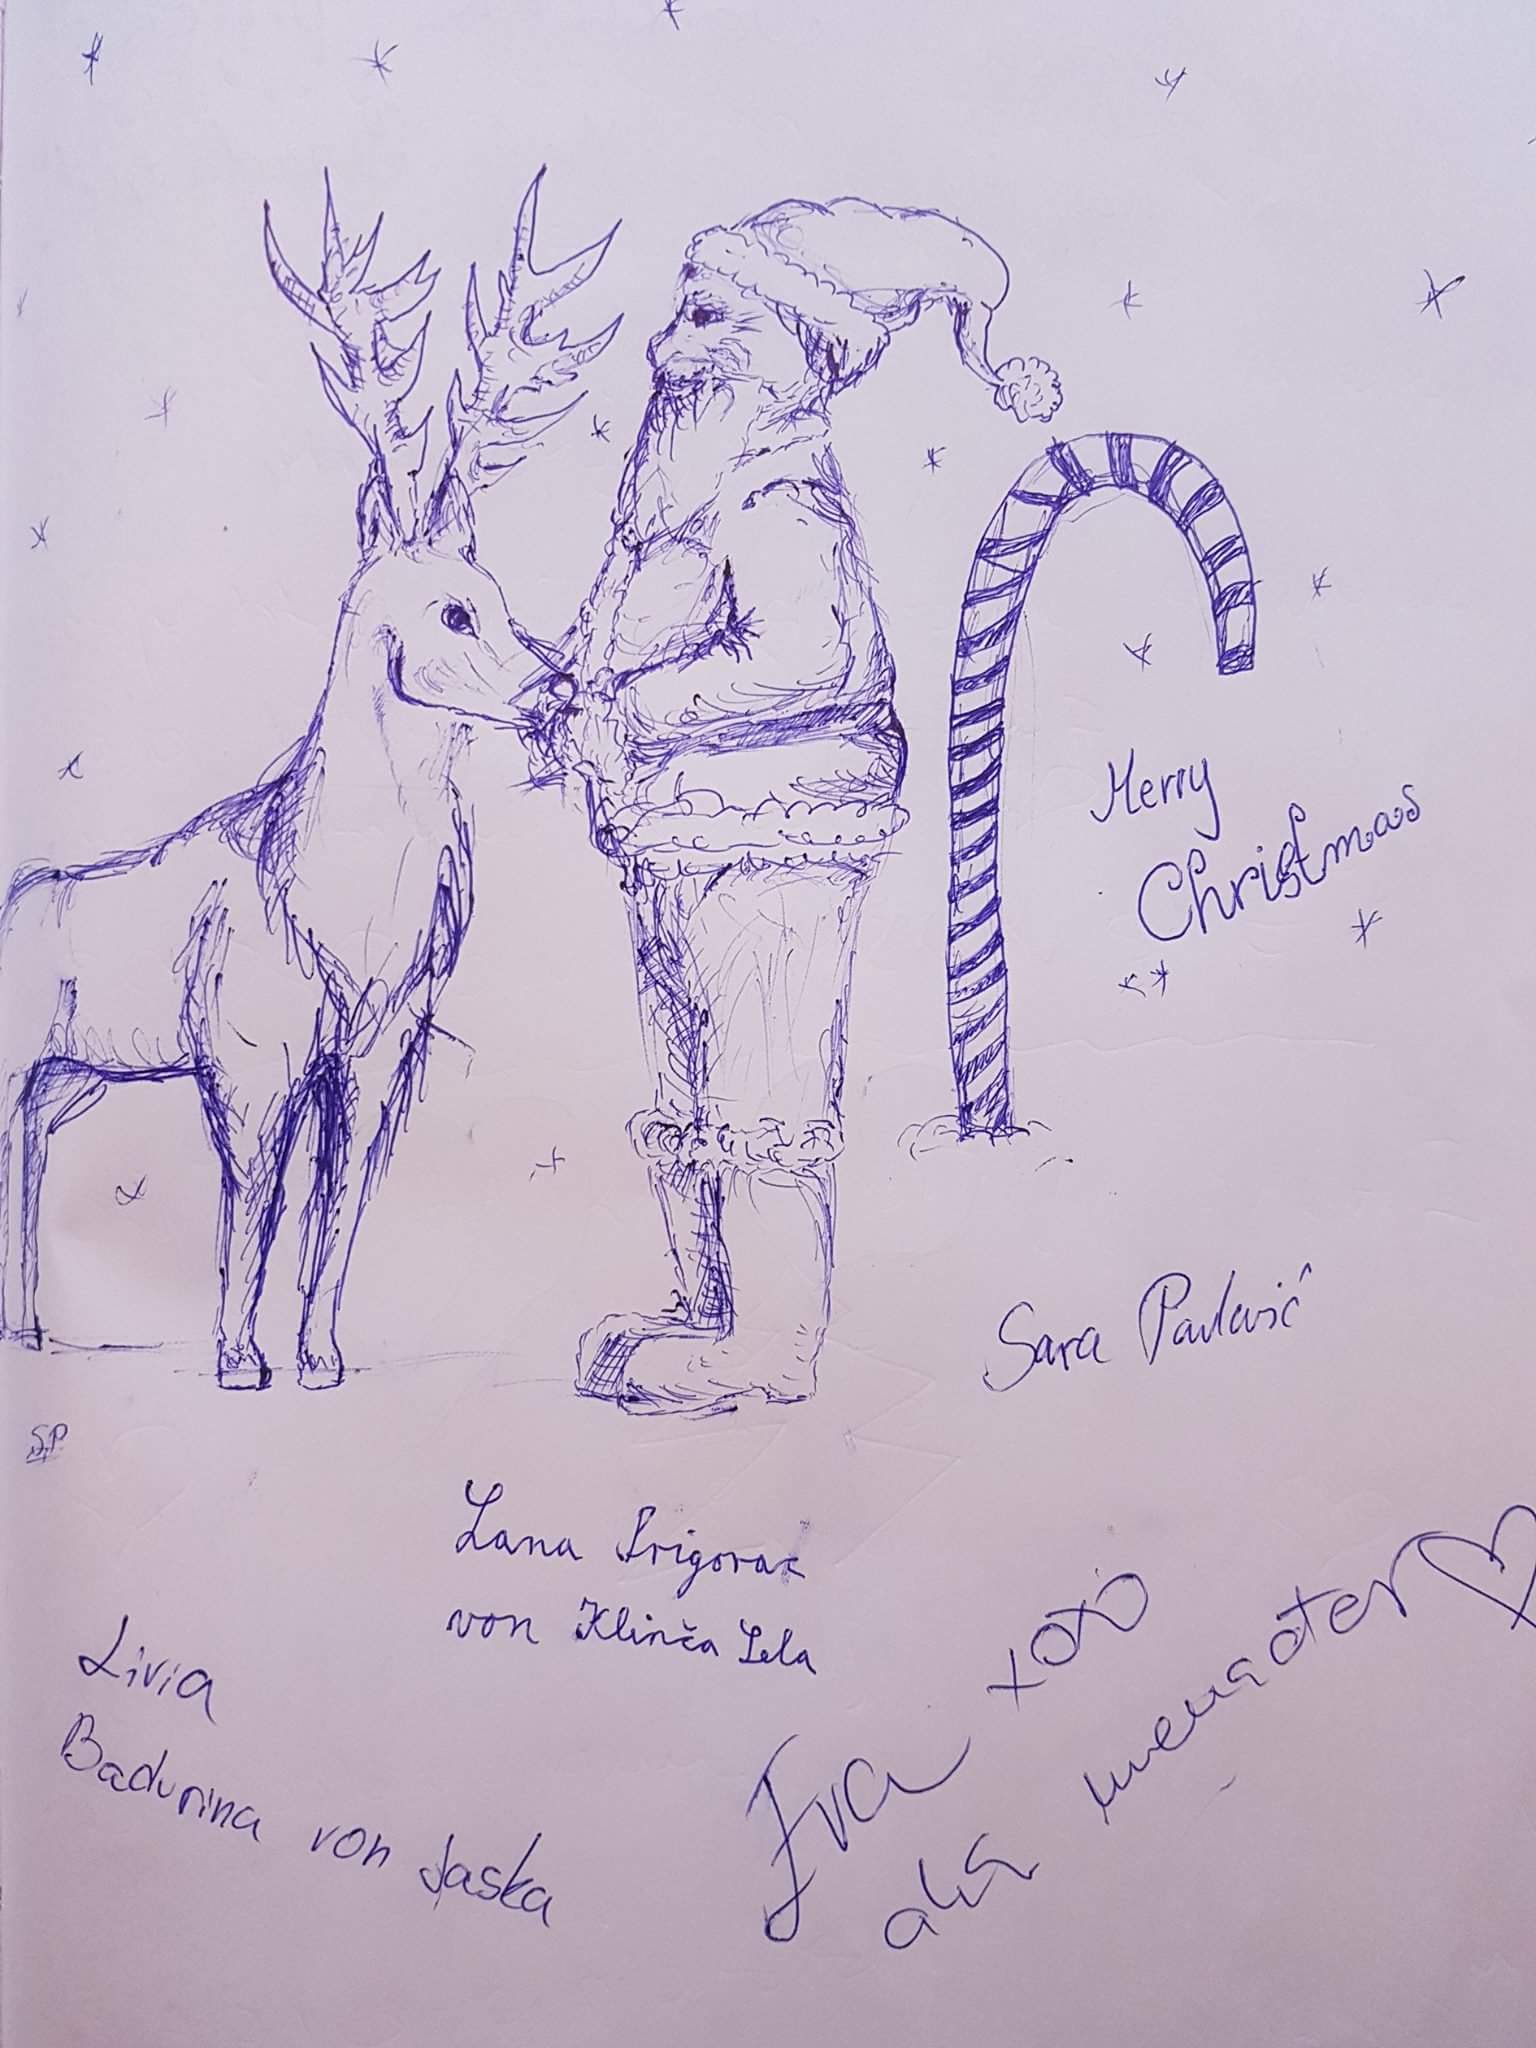 Merry
Christmas
Sara Pavlović
SP
Lana Prigorac
von Klinča Sela
Livia
Badurina von Jaska
Iva xoxo
aka menadžer